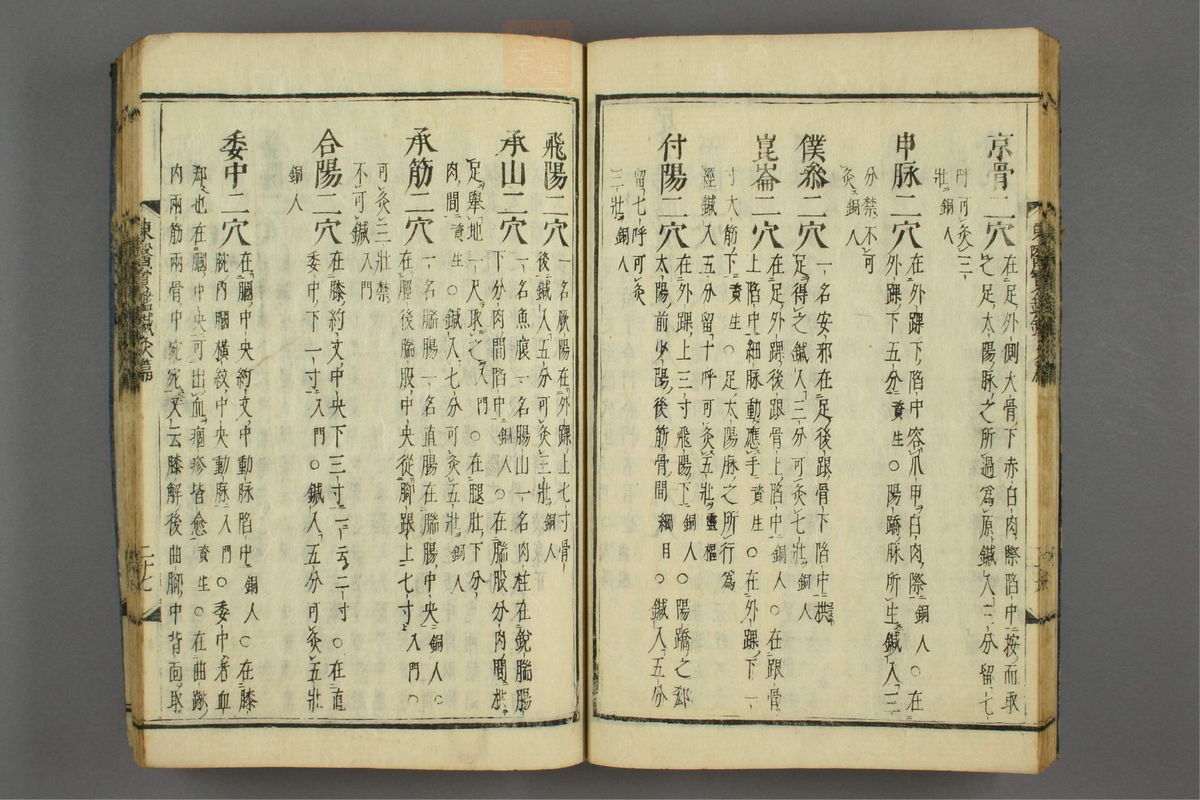 京骨二穴在足外側大骨下赤白肉際陷中按而取
之足太陽脉之所過爲原鍼入三分留七
呼可灸三
壯銅人
申脉二穴在外踝下陷中容爪甲白肉際銅人○在
外踝下五分資生○陽蹻脉所生鍼入三
分禁不可
灸銅人
僕叅二穴一名安邪在足後跟骨下陷中拱
足得之鍼入三分可灸七壯銅人○在跟骨
崑崙二穴在足外踝後跟骨上陷中銅人○在外踝下一
上陷中細脉動應手資生○足太陽脉之所行爲
寸大筋下資生
經鍼入五分留十呼可灸五壯靈樞
付陽二穴在外踝上三寸飛陽下銅人○陽蹻之郄
太陽前少陽後筋骨間綱目○鍼入五分
留七呼可灸
三壯銅人
飛陽二穴一名厥陽在外踝上七寸骨
後鍼入五分可灸三壯銅人
承山二穴一名魚腹一名腸山一名肉柱在銳腨腸
下分肉間陷中銅人○在腨股分肉間拱
足擧地一尺取之入門○在腿肚下分
肉間資生○鍼入七分可灸五壯銅人
承筋二穴一名腨腸一名直腸在腨腸中央銅人○
在脛後腨股中央從脚跟上七寸入門○
可灸三壯禁
不可鍼入門
合陽二穴在膝約文中央下三寸一云二寸○在直
委中下一寸入門○鍼入五分可灸五壯
銅人
委中二穴在膕中央約文中動脉陷中銅人○在膝
腕內膕橫紋中央動脉入門○委中者血
郄也在膕中央可出血痼疹皆愈資生○在曲䐐
內兩筋兩骨中宛宛又云膝解後曲脚中背面取
東醫寶鑑鍼灸篇
二十七